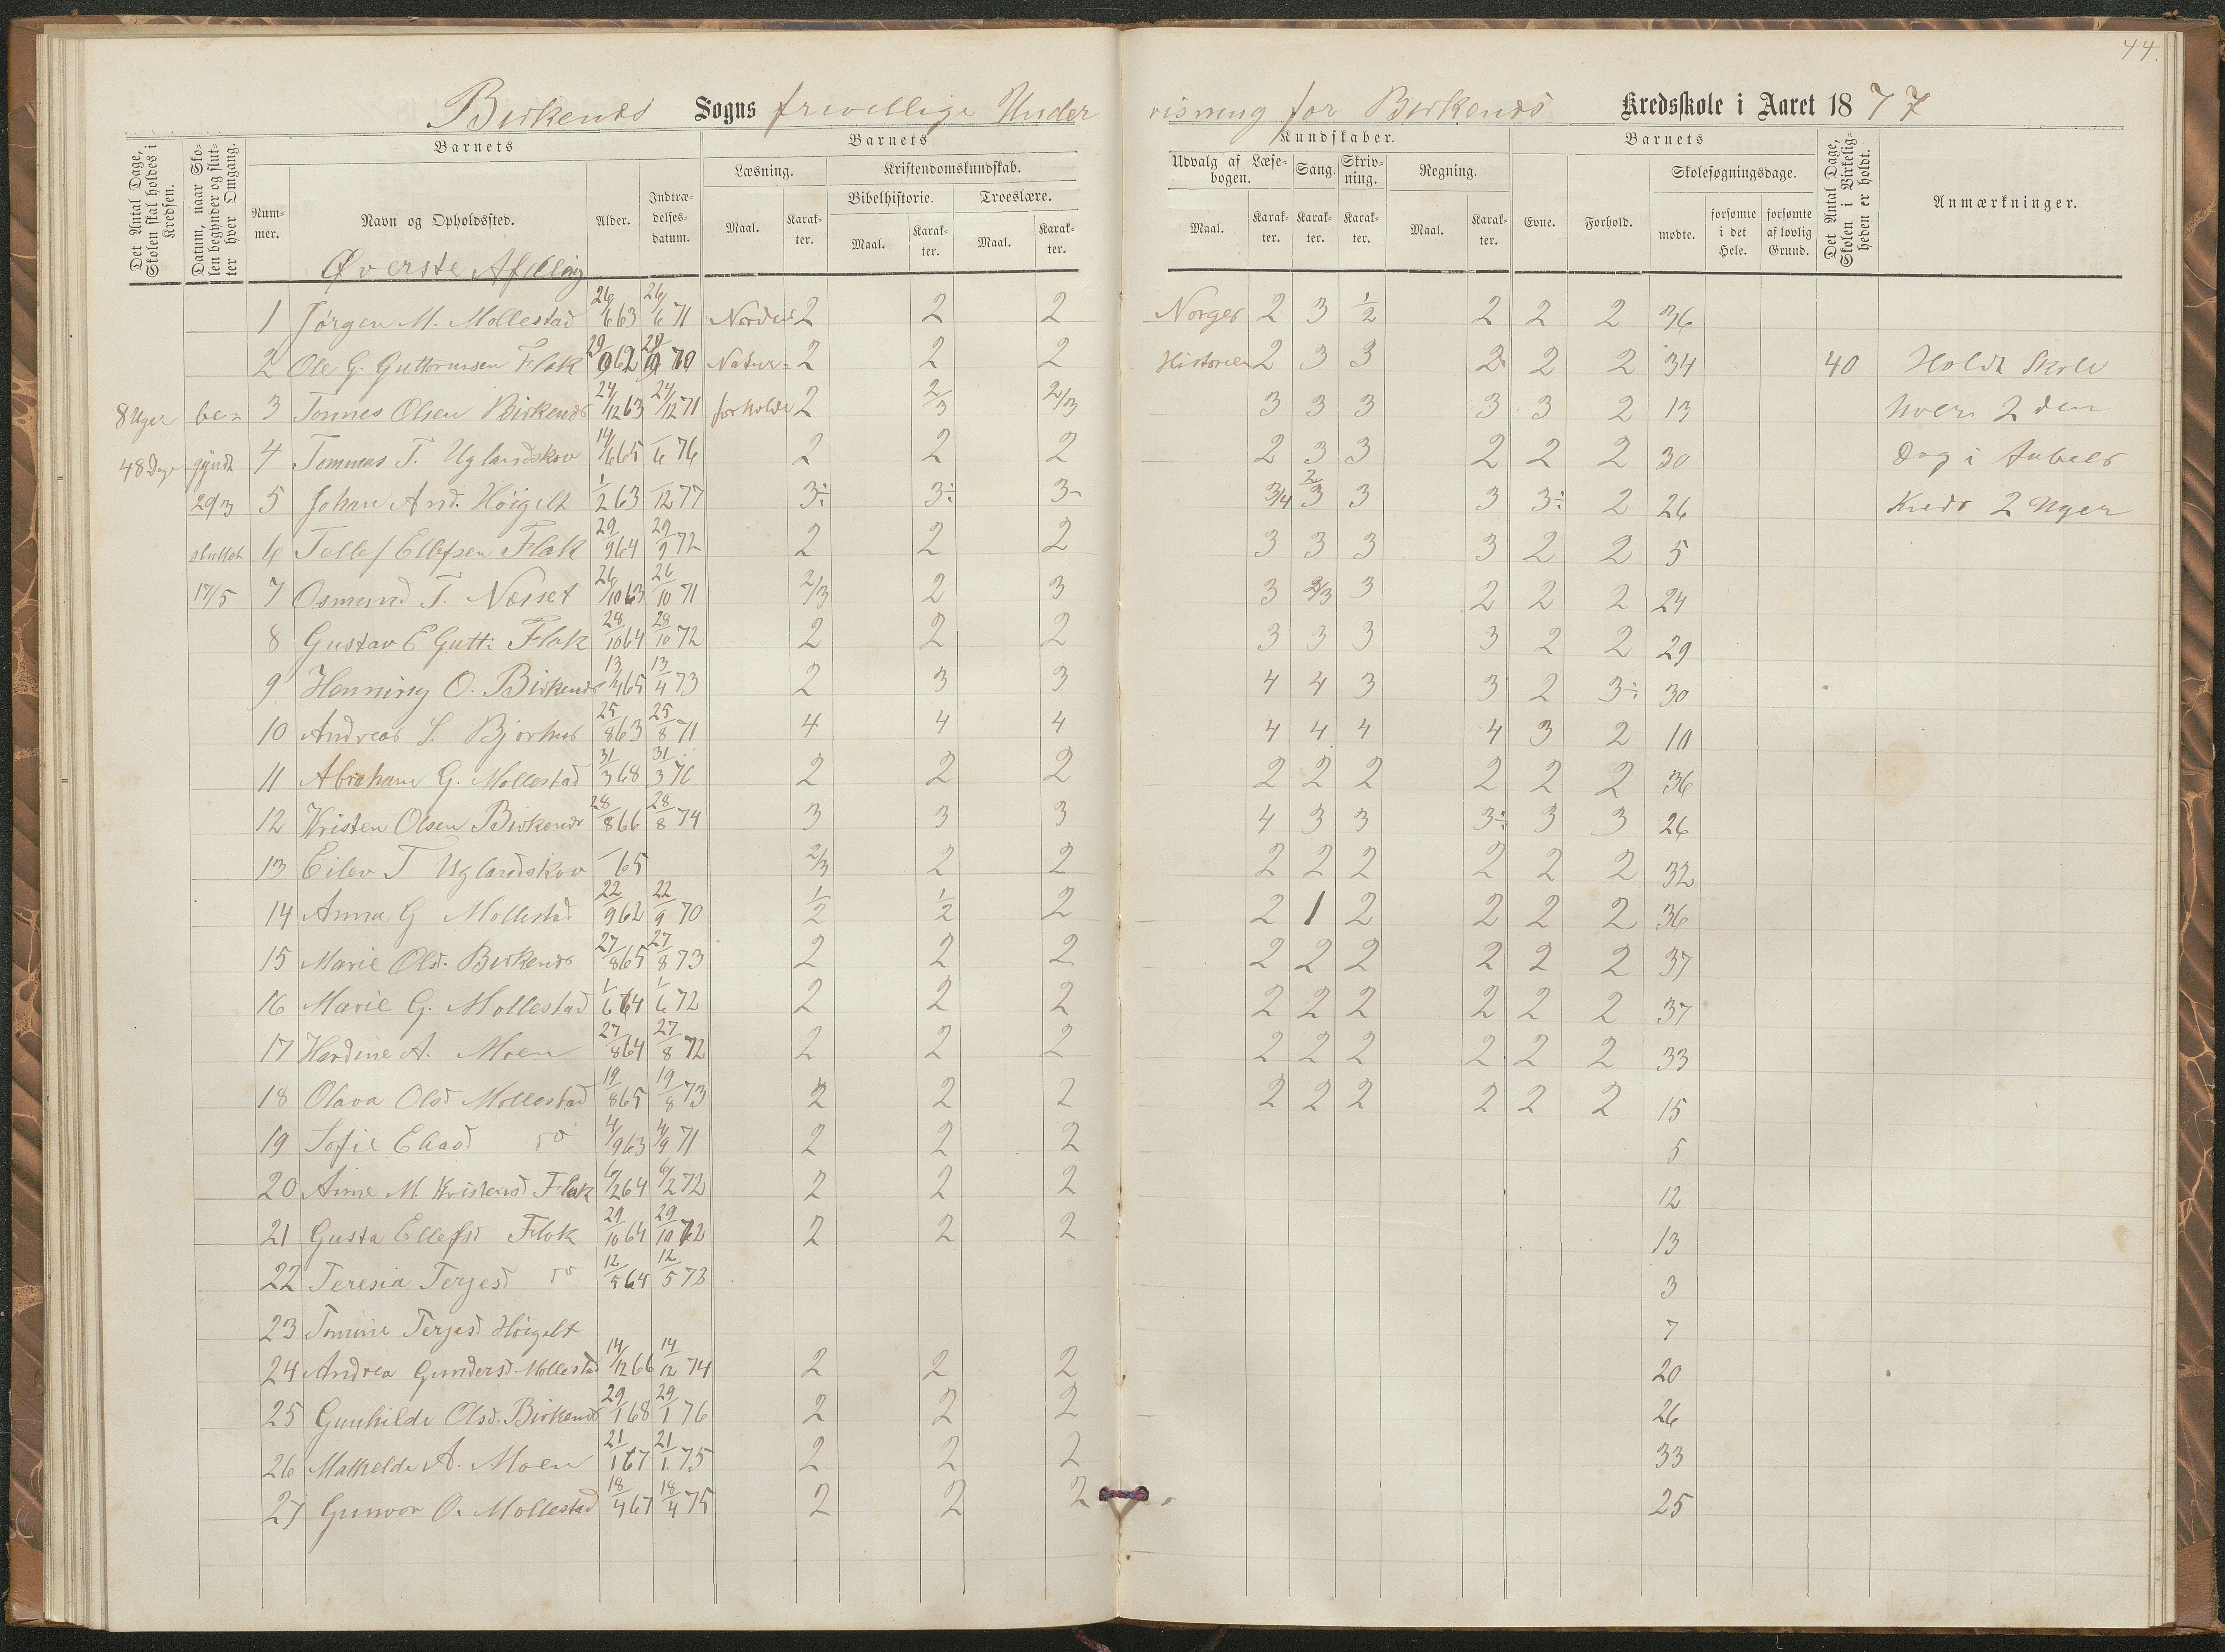 44.
Birkenes Sogns frivillige Under visning for Birkenes Kredsskole i Aaret 1877
Det Antal Dage, Skolen skal holdes i Kredsen.
Datum, naar Skolen begynder og slutter hver Omgang.
Barnets
Nummer.
Navn og Opholdssted.
Alder.
Indtrædelsesdatum.
Barnets
Læsning.
Maal.
Karakter.
Kristendomskundskab.
Bibelhistorie.
Maal.
Karakter.
Troeslære.
Maal.
Karakter.
Kundskaber.
Udvalg af Læsebogen.
Maal.
Karakter.
Sang.
Karakter.
Skrivning.
Karakter.
Regning.
Maal.
Karakter.
Barnets
Evne.
Forhold.
Skolesøgningsdage.
mødte.
forsømte i det Hele.
forsømte af lovlig Grund.
Det Antal Dage, Skolen i Virkeligheden er holdt.
Anmærkninger.
Øverste Afdeling
1 Jørgen M. Mollestad 26/6 63 26/6 71 Nordens 2 2 2 Norges 2 3 1/2 2 2 2 36
2 Ole G. Guttormsen Flak 29/9 62 29/9 70 Natur- 2 2 2 Historien 2 3 3 2 2 2 34 40 Holdt Skole
8 Uger be- 3 Tønnes Olsen Birkenes 24/12 63 24/12 71 forholde 2 2/3 2/3 3 3 3 3 3 2 13 hver 2den
48 Dage gyndt 4 Tommas T. Uglandskov 14/6 65 /6 76 2 2 2 2 3 3 2 2 2 30 Dag i
29/3 5 Johan And. Höigelt 1/2 63 /12 77 3÷ 3÷ 3- 3/4 2/3 3 3 3÷ 2 26 Kreds 2 Uger
sluttet 6 Tellef Ellefsen Flak 29/9 64 29/9 72 2 2 2 3 3 3 3 2 2 5
17/5 7 Osmund T. Næsset 26/10 63 26/10 71 2/3 2 3 3 2/3 3 2 2 2 24
8 Gustav E Gutt: Flak 28/10 64 28/10 72 2 2 2 3 3 3 3 2 2 29
9 Henning O. Birkenes 13/4 65 13/4 73 2 3 3 4 4 3 3 2 3÷ 30
10 Andreas S. Bjorhus 25/8 63 25/8 71 4 4 4 4 4 4 4 3 2 10
11 Abraham G. Mollestad 31/3 68 31/3 76 2 2 2 2 2 2 2 2 2 36
12 Kristen Olsen Birkenes 28/8 66 28/8 74 3 3 3 4 3 3 3÷ 3 3 26
13 Eilev T Uglandskov 65 2/3 2 2 2 2 2 2 2 2 32
14 Anna G Mollestad 22/9 62 22/9 70 1/2 1/2 2 2 1 2 2 2 2 36
15 Marie Olsd. Birkenes 27/8 65 27/8 73 2 2 2 2 2 2 2 2 2 37
16 Marie G. Mollestad 1/6 64 1/6 72 2 2 2 2 2 2 2 2 2 37
17 Hardine A. Moen 27/8 64 27/8 72 2 2 2 2 2 2 2 2 2 33
18 Olava Olsd Mollestad 19/8 65 19/8 73 2 2 2 2 2 2 2 2 2 15
19 Sofie do 4/9 63 4/9 71 2 2 2 5
20 Anne M. Kristensd Flak 6/2 64 6/2 72 2 2 2 12
21 Gusta Ellefsd Flak 29/10 64 29/10 72 2 2 2 13
22 Teresia Terjesd do 12/5 12/5 73 3
23 Tomine Terjesd Höigelt 7
24 Andrea Gundersd Mollestad 14/12 66 14/12 74 2 2 2 20
25 Gunhilde Olsd. Birkenes 29/1 68 29/1 76 2 2 2 26
26 Mathelde A. Moen 21/1 67 21/1 75 2 2 2 33
27 Gunvor O. Mollestad 18/4 67 18/4 75 2 2 2 25